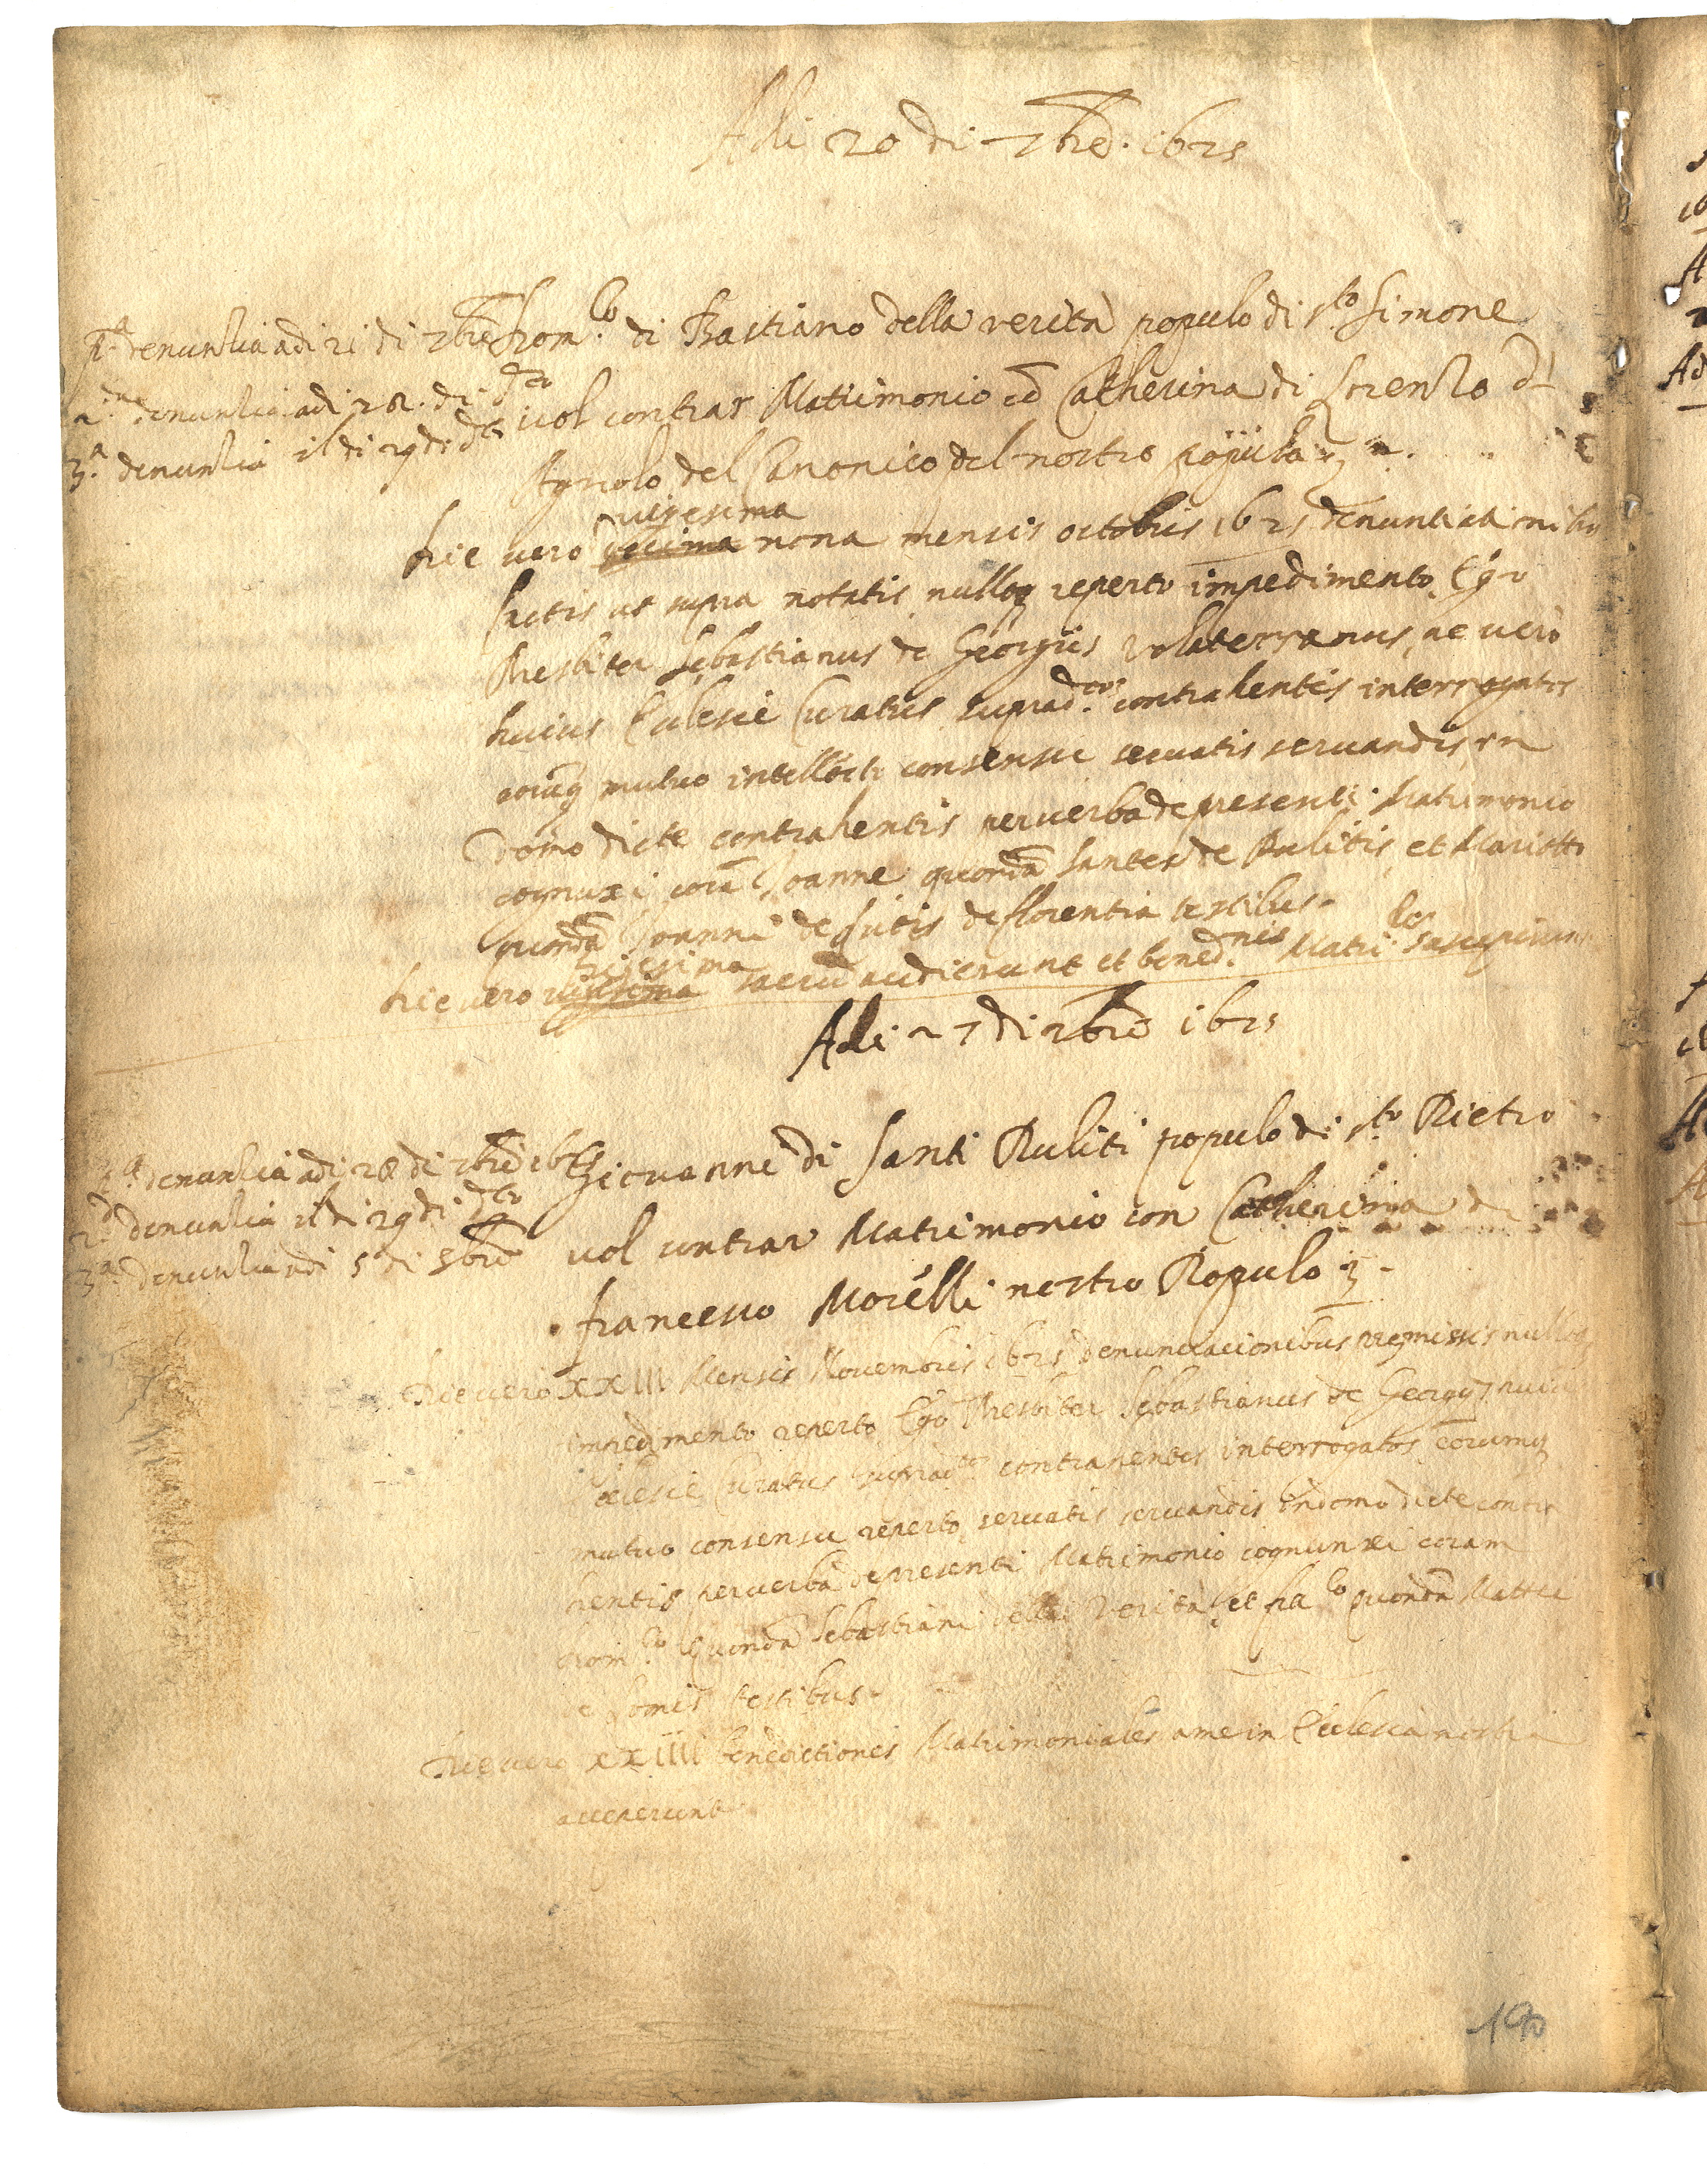 Adi 20 di 7bre. 1625
p.a denuntia adi 21 di 7bre
2.da denuntia adi 28. di d.to
3.a denuntia il di 29 di d.to
Dom.co di Bastiano della verità populo di s.to Simone
vol contrar Matrimonio cõ Catherina di Lorenzo d'
Agnolo del Canonico del nostro populo
vigesima
Die vero decima nona mensis octobris 1625 denuntiationibus
factis ut supra notatis nulloq reperto impedimento Ego
Presbiter Sebastianus de Georgiis Volaterranus, ac vero
huius Eclesie Curatus suprad.tos contrahentes interrogatos
eorũq mutuo intellecto consensu servatis servandis in
Domo dicte contrahentis per verba de presenti Matrimonio
cognuxi corã Joanne quondã Santes de Puliti, et Mariotto
quondã Joanni de de florentia testibus.
trigesima
Die vero vigesima sacrũ audierunt et bened.nes Matri.les susceperunt
Adi 27 di 7bre 1625
p.a denuntia adi 28 di 7bre 1625
2.da denuntia il di 29 di d.to
3.a denuntia adi 5 di 8bre
Giovanni di Santi Puliti populo di s.to Pietro
vol contrar Matrimonio con Catherina di
francesco Morelli nostro Populo
Die vero XXIII Mensis Novembris 1625 denunciacionibus premissis nulloq
impedimento reperto Ego Presbiter Sebastianus de Georgiis huius
Eclesie Curatus suprad.tos contrahentes interrogatos eorumq
mutuo consensu reperto, servatis servandis in domo dicte contra
hentis per verba de presenti Matrimonio cognunxi coram
Dom.co quondã Sebastiani della Verità, et fra.co quondã Mattei
de testibus.
Die vero XXIIII benedictiones Matrimoniales a me in Eclesia nostra
acceperunt
190